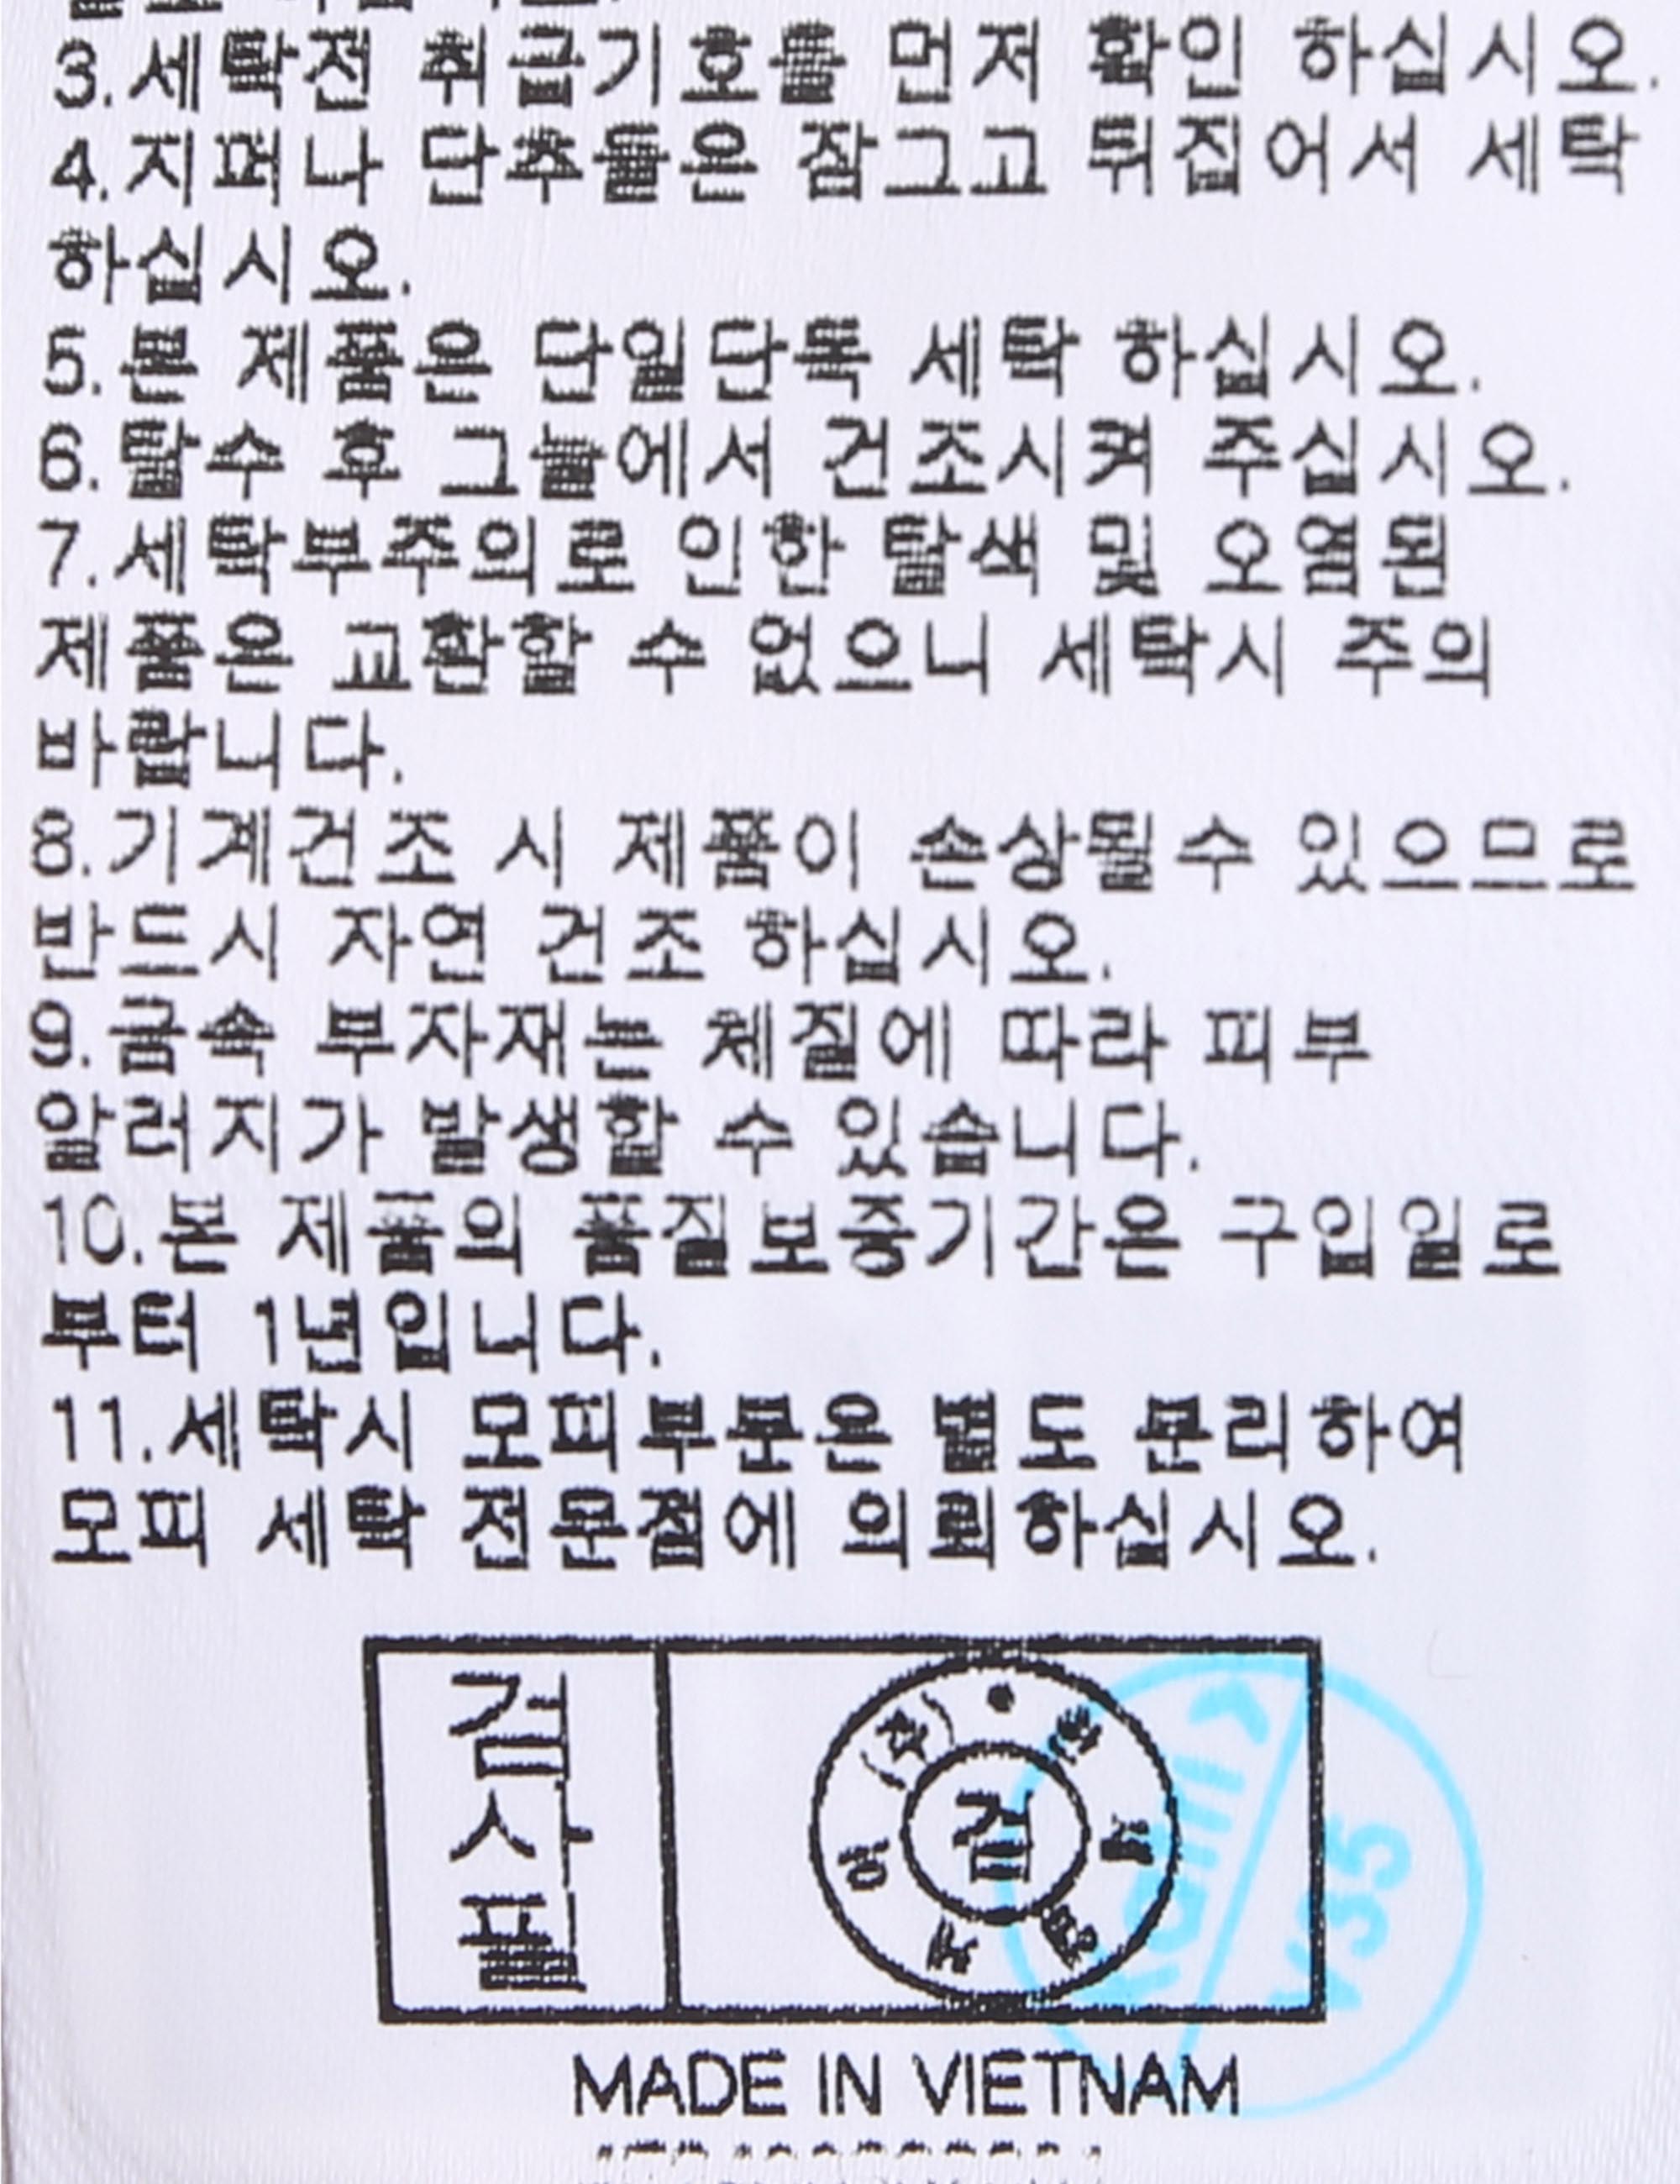 3.세탁전 취급기호를 먼저 확인 하십시오.
4.지퍼나 단추들은 잠그고 뒤집어서 세탁
하십시오.
5.본 제품은 단일단독 세탁 하십시오.
6.탈수 후 그늘에서 건조시켜 주십시오.
7.세탁부주의로 인한 탈색 및 오염된
제품은 교환할 수 없으니 세탁시 주의
바랍니다.
8.기계건조 시 제품이 손상될수 있으므로
반드시 자연 건조 하십시오.
9.금속 부자재는 체질에 따라 피부
알러지가 발생할 수 있습니다.
10.본 제품의 품질보증기간은 구입일로
부터 1년입니다.
11.세탁시 모피부분은 별도 분리하여
모피 세탁 전문점에 의뢰하십시오.
검사필
검
V35
MADE IN VIETNAM